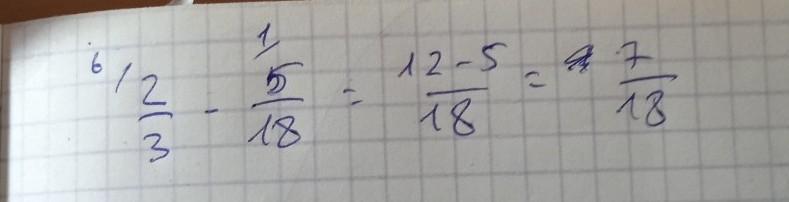 6/ 2/3 - 1/ 5/18 = 12-5/18 = 7/18